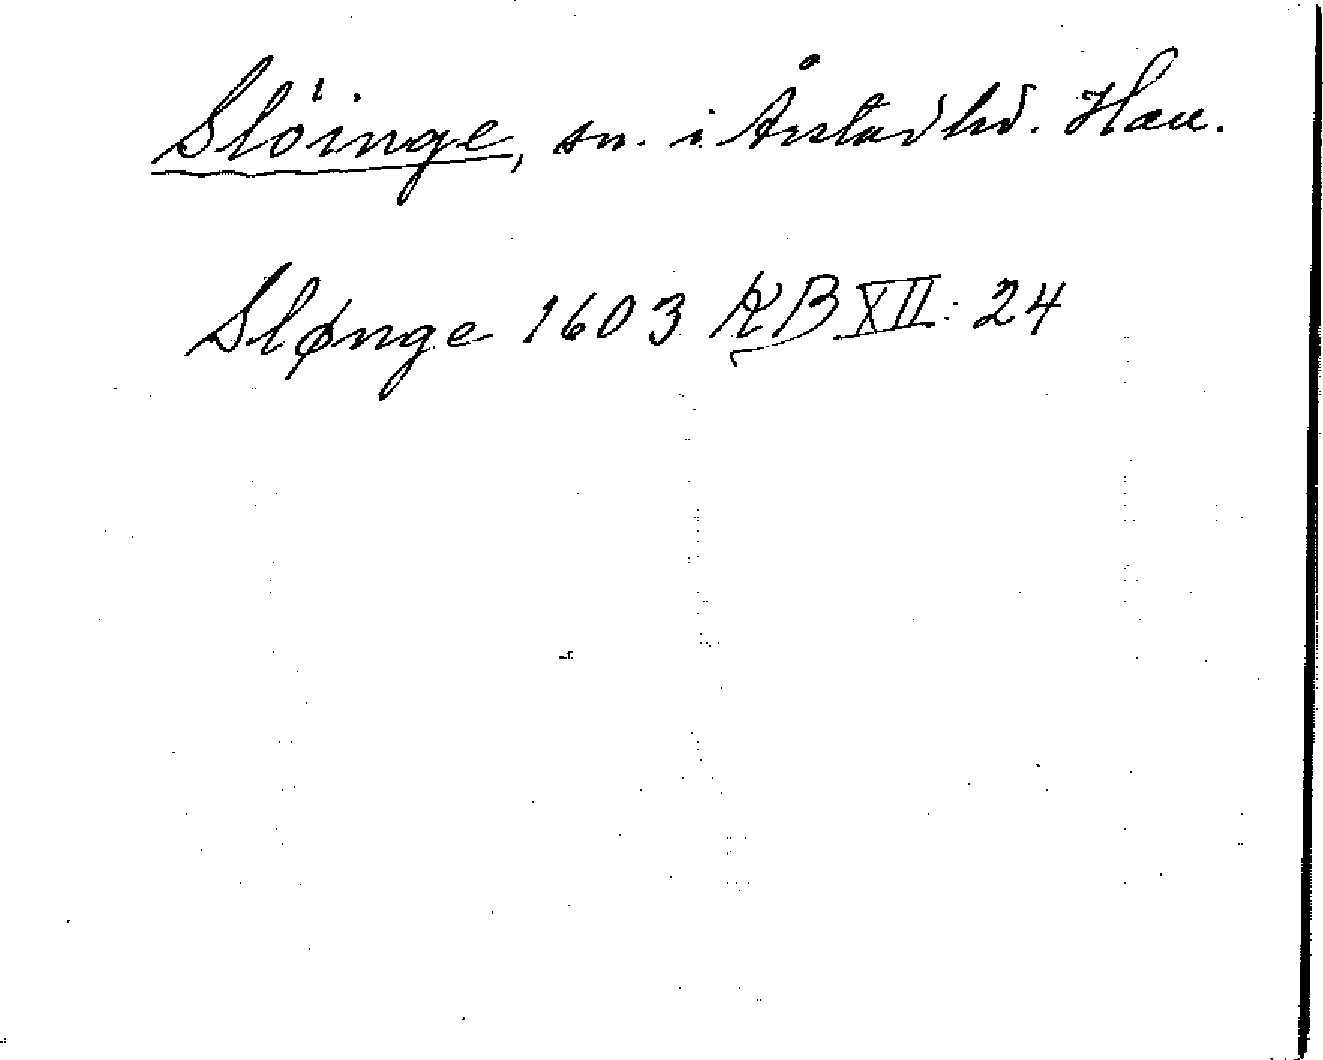 Slöinge, sn. i Årstad hd. Hall.
Slønge 1603 KB XII: 24